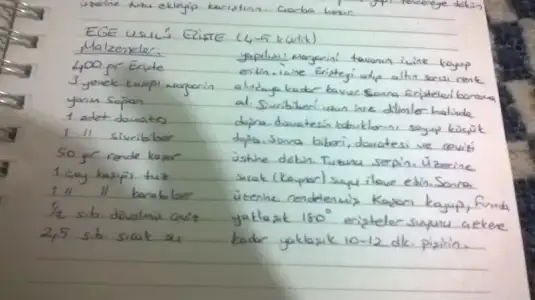 üzerine tuzu ekleyip karıştırın. Çorba hazır.
EGE USULÜ ERİŞTE (4-5 kişilik)
Malzemeler:
400 gr Erişte
3 yemek kaşığı margarin
yarım soğan
1 adet domates
1 " sivribiber
50 gr rende kaşar
1 çay kaşığı tuz
1 " " karabiber
1/2 s.b. dövülmüş ceviz
2,5 s.b. sıcak su
yapılışı: margarini tavanın içine koyup
eritin. içine Erişteyi alıp altın sarısı renk
alıncaya kadar kavur. Sonra Erişteleri borcama
al. Sivribiberi uzun ince dilimler halinde
doğra. domatesin kabuklarını soyup küçük
doğra. Sonra biberi, domatesi ve cevizi
üstüne dökün. Tuzunu serpin. Üzerine
sıcak (kaynar) suyu ilave edin. Sonra
üzerine rendelenmiş Kaşarı koyup, fırında
yaklaşık 180° erişteler suyunu çekene
kadar yaklaşık 10-12 dk. pişirin.